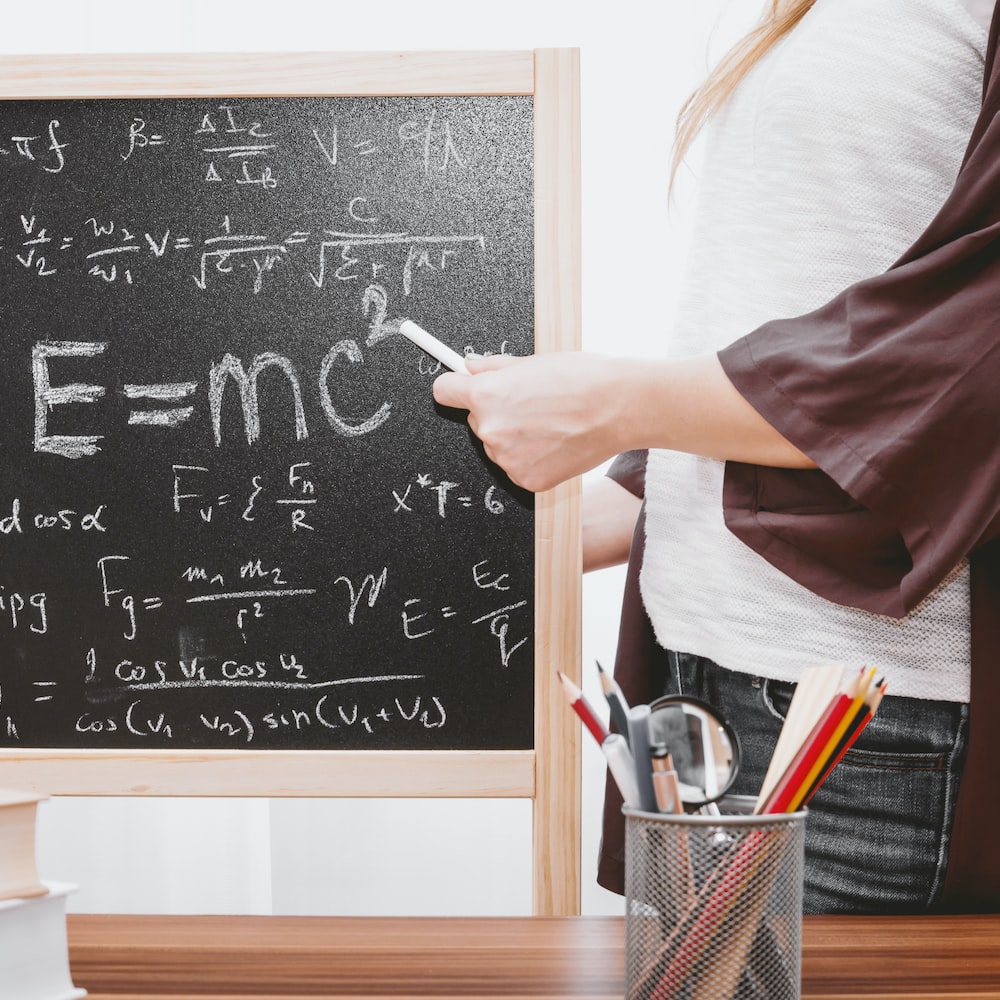 πf β= ΔI₂/ΔI_B V = c/λ
v₁/v₂ = w₂/w₁ V = 1/√(ε·γr) = C/√(εr μr)
E=mc²
d cosα F_v = { F_n/R x*T=6
ipg F_g = m₁ m₂/r² E = Ec/q
= 1 cos v₁ cos v₂/cos(v₁ v₂) sin(v₁+v₂)